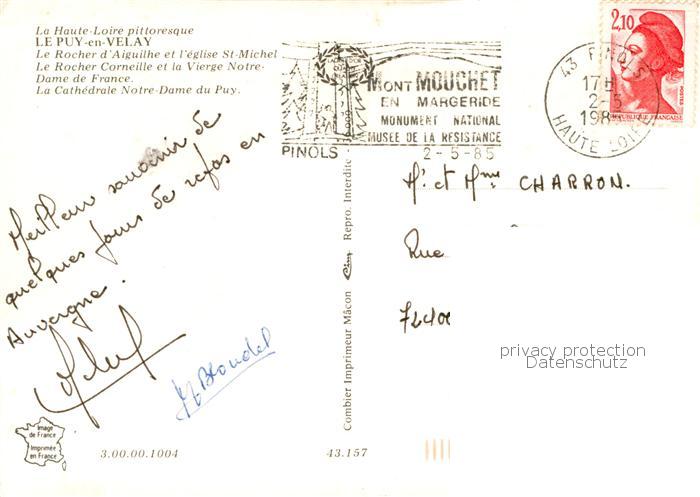 La Haute-Loire pittoresque
LE PUY-en-VELAY
Le Rocher d'Aiguilhe et l'église St-Michel
Le Rocher Corneille et la Vierge Notre-
Dame de France.
La Cathédrale Notre-Dame du Puy.
MONT MOUCHET
EN MARGERIDE
MONUMENT NATIONAL
MUSEE DE LA RESISTANCE
PINOLS
2-5-85
43 PINOLS
17H
2-5
198
HAUTE LOIRE
2,10
POSTES
REPUBLIQUE FRANÇAISE
Meilleur souvenir de
quelques jours de repos en
Auvergne.
M Blondel
Mr. et Mme CHARRON.
Rue
72400
privacy protection
Datenschutz
Combier Imprimeur Mâcon Cim Repro. Interdite
Image
de France
Imprimée
en France
3.00.00.1004
43.157